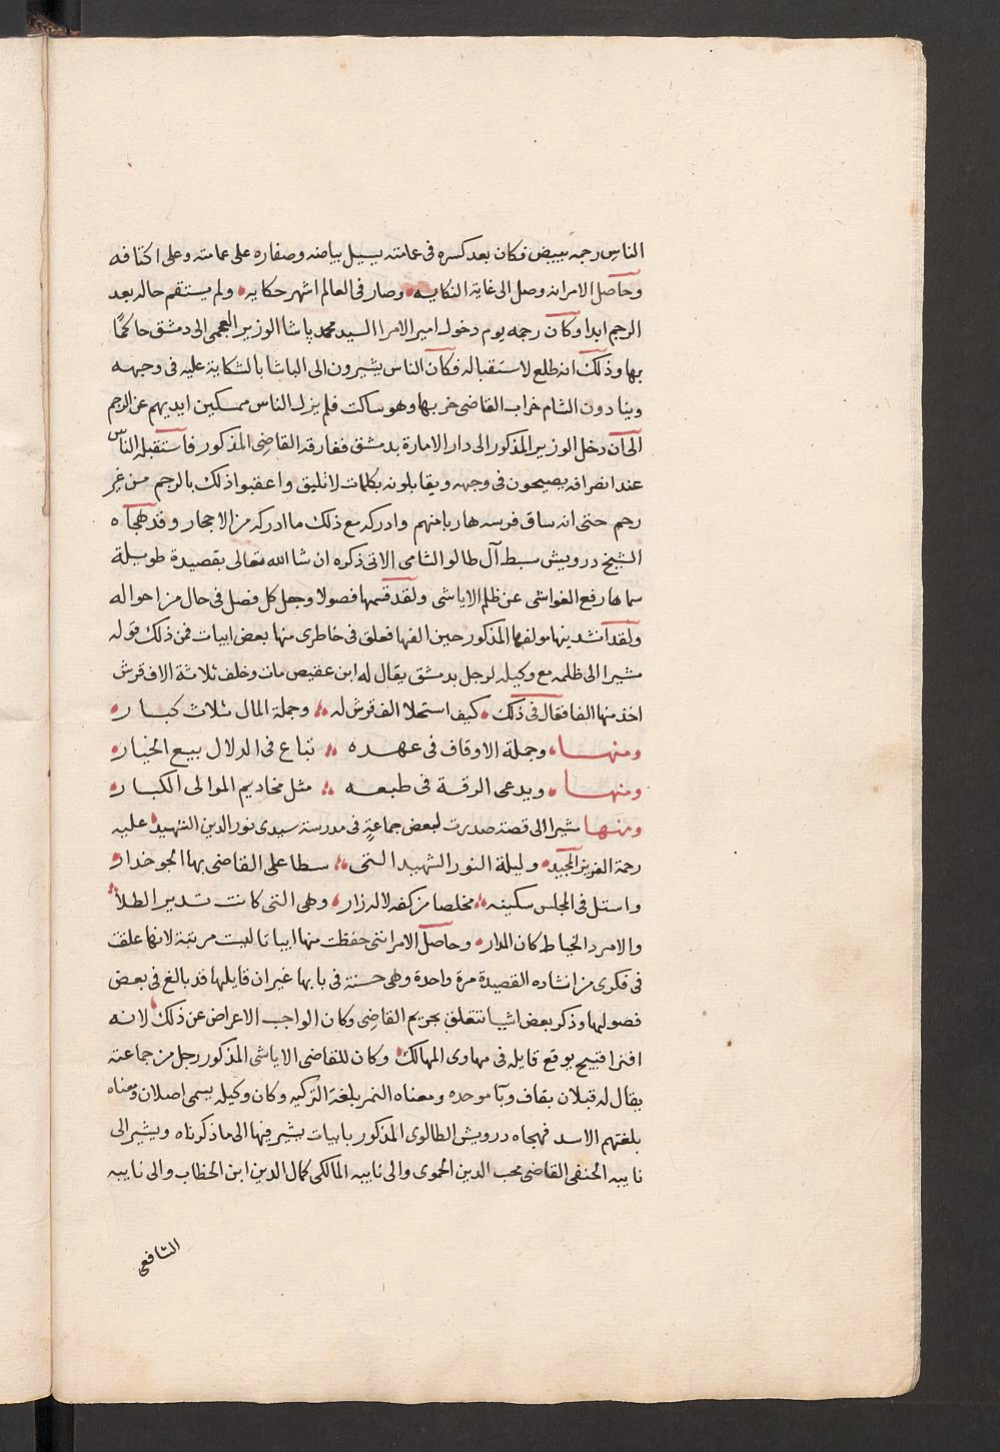 الناس رجمه ببيض فكان بعد كسره فى عمامته يسيل بياضه وصفاره على عمامته وعلى اكتافه
وحاصل الامر انه وصل الى غاية النكايه وصار فى العالم اشهر حكايه ولم يستقم حاله بعد
الرجم ابدا وكان رجمه يوم دخول امير الامرا السيد محمد پاشا الوزير العجمى الى دمشق حاكمًا
بها وذلك انه طلع لاستقباله فكان الناس يشيرون الى الباشا بالشكاية عليه فى وجهه
وينادون الشام خراب القاضى خربها وهو ساكت فلم يزل الناس ممسكين ايديهم عن الرجم
الى ان دخل الوزير المذكور الى دار الامارة بدمشق ففارقه القاضى المذكور فاستقبله الناس
عند انصرافه يصيحون فى وجهه ويقابلونه بكلمات لا تليق واعقبوا ذلك بالرجم من غير
رحم حتى انه ساق فرسه هاربا منهم وادركه مع ذلك ما ادركه من الاحجار وقد هجاه
الشيخ درويش سبط آل طالو الشامى الاتى ذكره ان شا الله تعالى بقصيدة طويلة
سماها رفع الغواشى عن ظلم الاياشى ولقد قسمها فصولا وجعل كل فصل فى حال من احواله
ولقد انشدينها مولفها المذكور حين الفها فعلق فى خاطرى منها بعض ابيات فمن ذلك قوله
مشيرا الى ظلمه مع وكيله لرجل بدمشق يقال له ابن عقيص مات وخلف ثلاثة الاف قرش
اخذ منها الفا فقال فى ذلك كيف استحلا الف قرش له وجملة المال ثلاث كبار
ومنها وجملة الاوقاف فى عهده تباع فى الدلال بيع الخيار
ومنها ويدعى الرقة فى طبعه مثل مخاديم الموالى الكبار
ومنها مشيرا الى قصة صدرت لبعض جماعةٍ فى مدرسة سيدى نور الدين الشهيد عليه
رحمة العزيز المجيد وليلة النور الشهيد التى سطا على القاضى بها الجوخدار
واستل فى المجلس سكينه مخلصا من كفه لاله زار وهى التى كانت تدير الطلا
والامرد الخياط كان المدار وحاصل الامر اننى حفظت منها ابياتا ليست مرتبة لانها علقت
فى فكرى من انشاده القصيدة مرة واحدة وهى حسنة فى بابها غير ان قايلها قد بالغ فى بعض
فصولها وذكر بعض اشيا تتعلق بحريم القاضى وكان الواجب الاعراض عن ذلك لانه
افترا قبيح يوقع قايله فى مهاوى المهالك وكان للقاضى الاياشى المذكور رجل من جماعته
يقال له قبلان بقاف وبآ موحده ومعناه النمر بلغة التركيه وكان وكيله يسمى اصلان ومعناه
بلغتهم الاسد فهجاه درويش الطالوى المذكور بابيات يشير فيها الى ما ذكرناه ويشير الى
نايبه الحنفى القاضى محب الدين الحموى والى نايبه المالكى كمال الدين ابن الخطاب والى نايبه
الشافعى